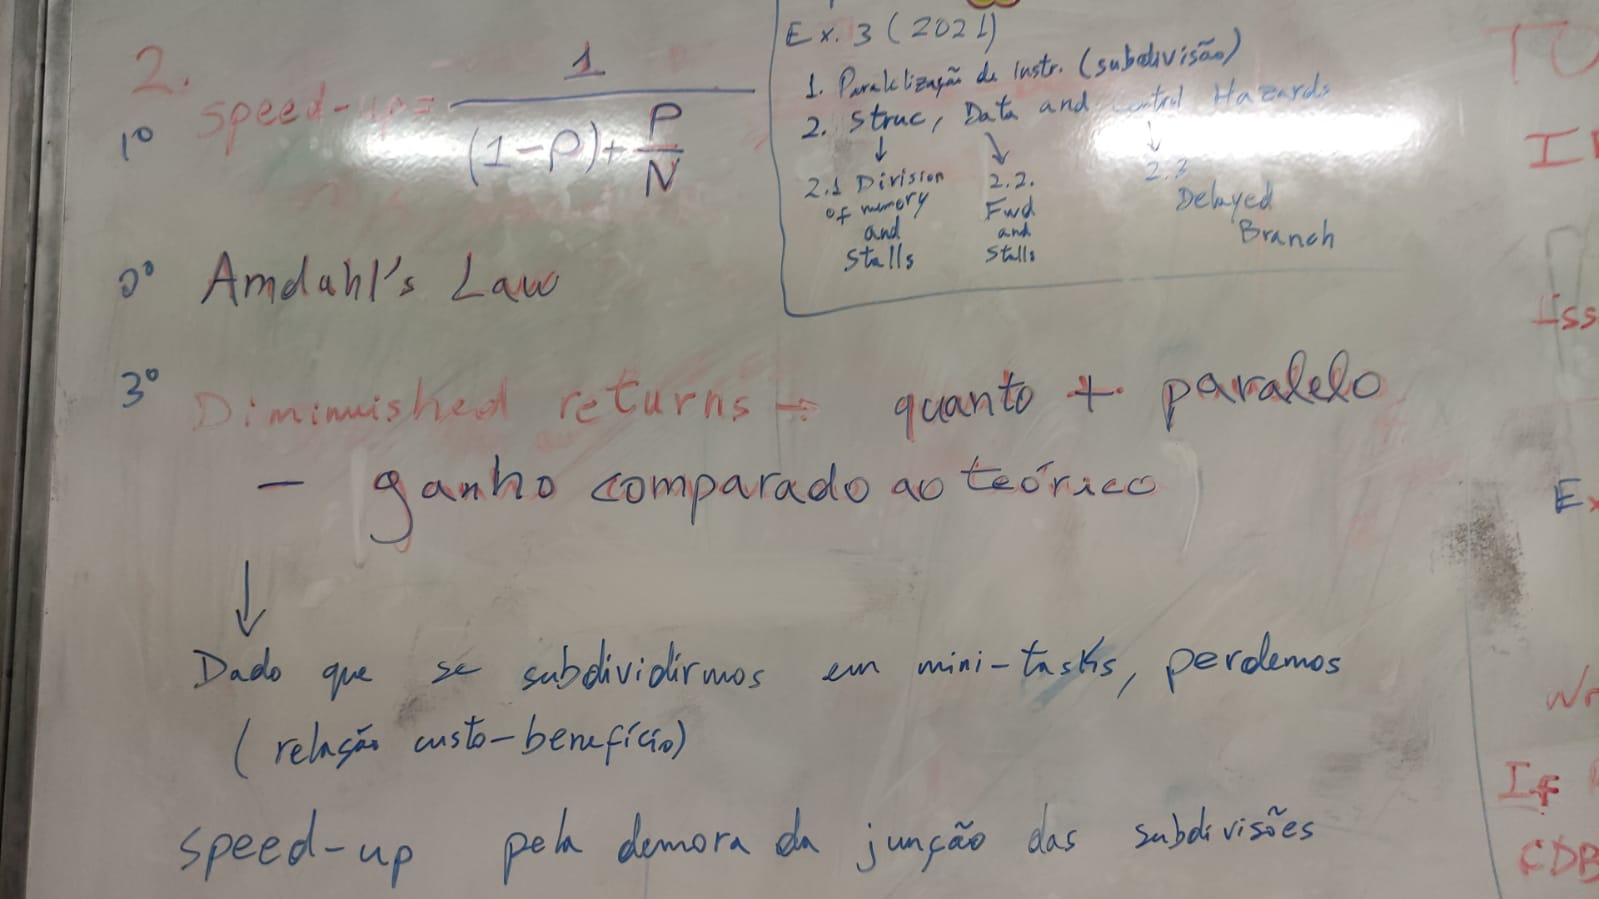 2.
1º speed-up = 1 / ((1-P) + P/N)
0º Amdahl's Law
3º Diminuished returns → quanto + paralelo
- ganho comparado ao teórico
↓
Dado que se subdividirmos em mini-tasks, perdemos
(relação custo-benefício)
speed-up pela demora da junção das subdivisões
Ex. 3 (2021)
1. Paralelização de instr. (subdivisão)
2. Struc, Data and control Hazards
↓ ↓ ↓
2.1 Division of memory and Stalls
2.2. Fwd and Stalls
2.3 Delayed Branch
TO
Iss
Ex
Wr
If
CDB